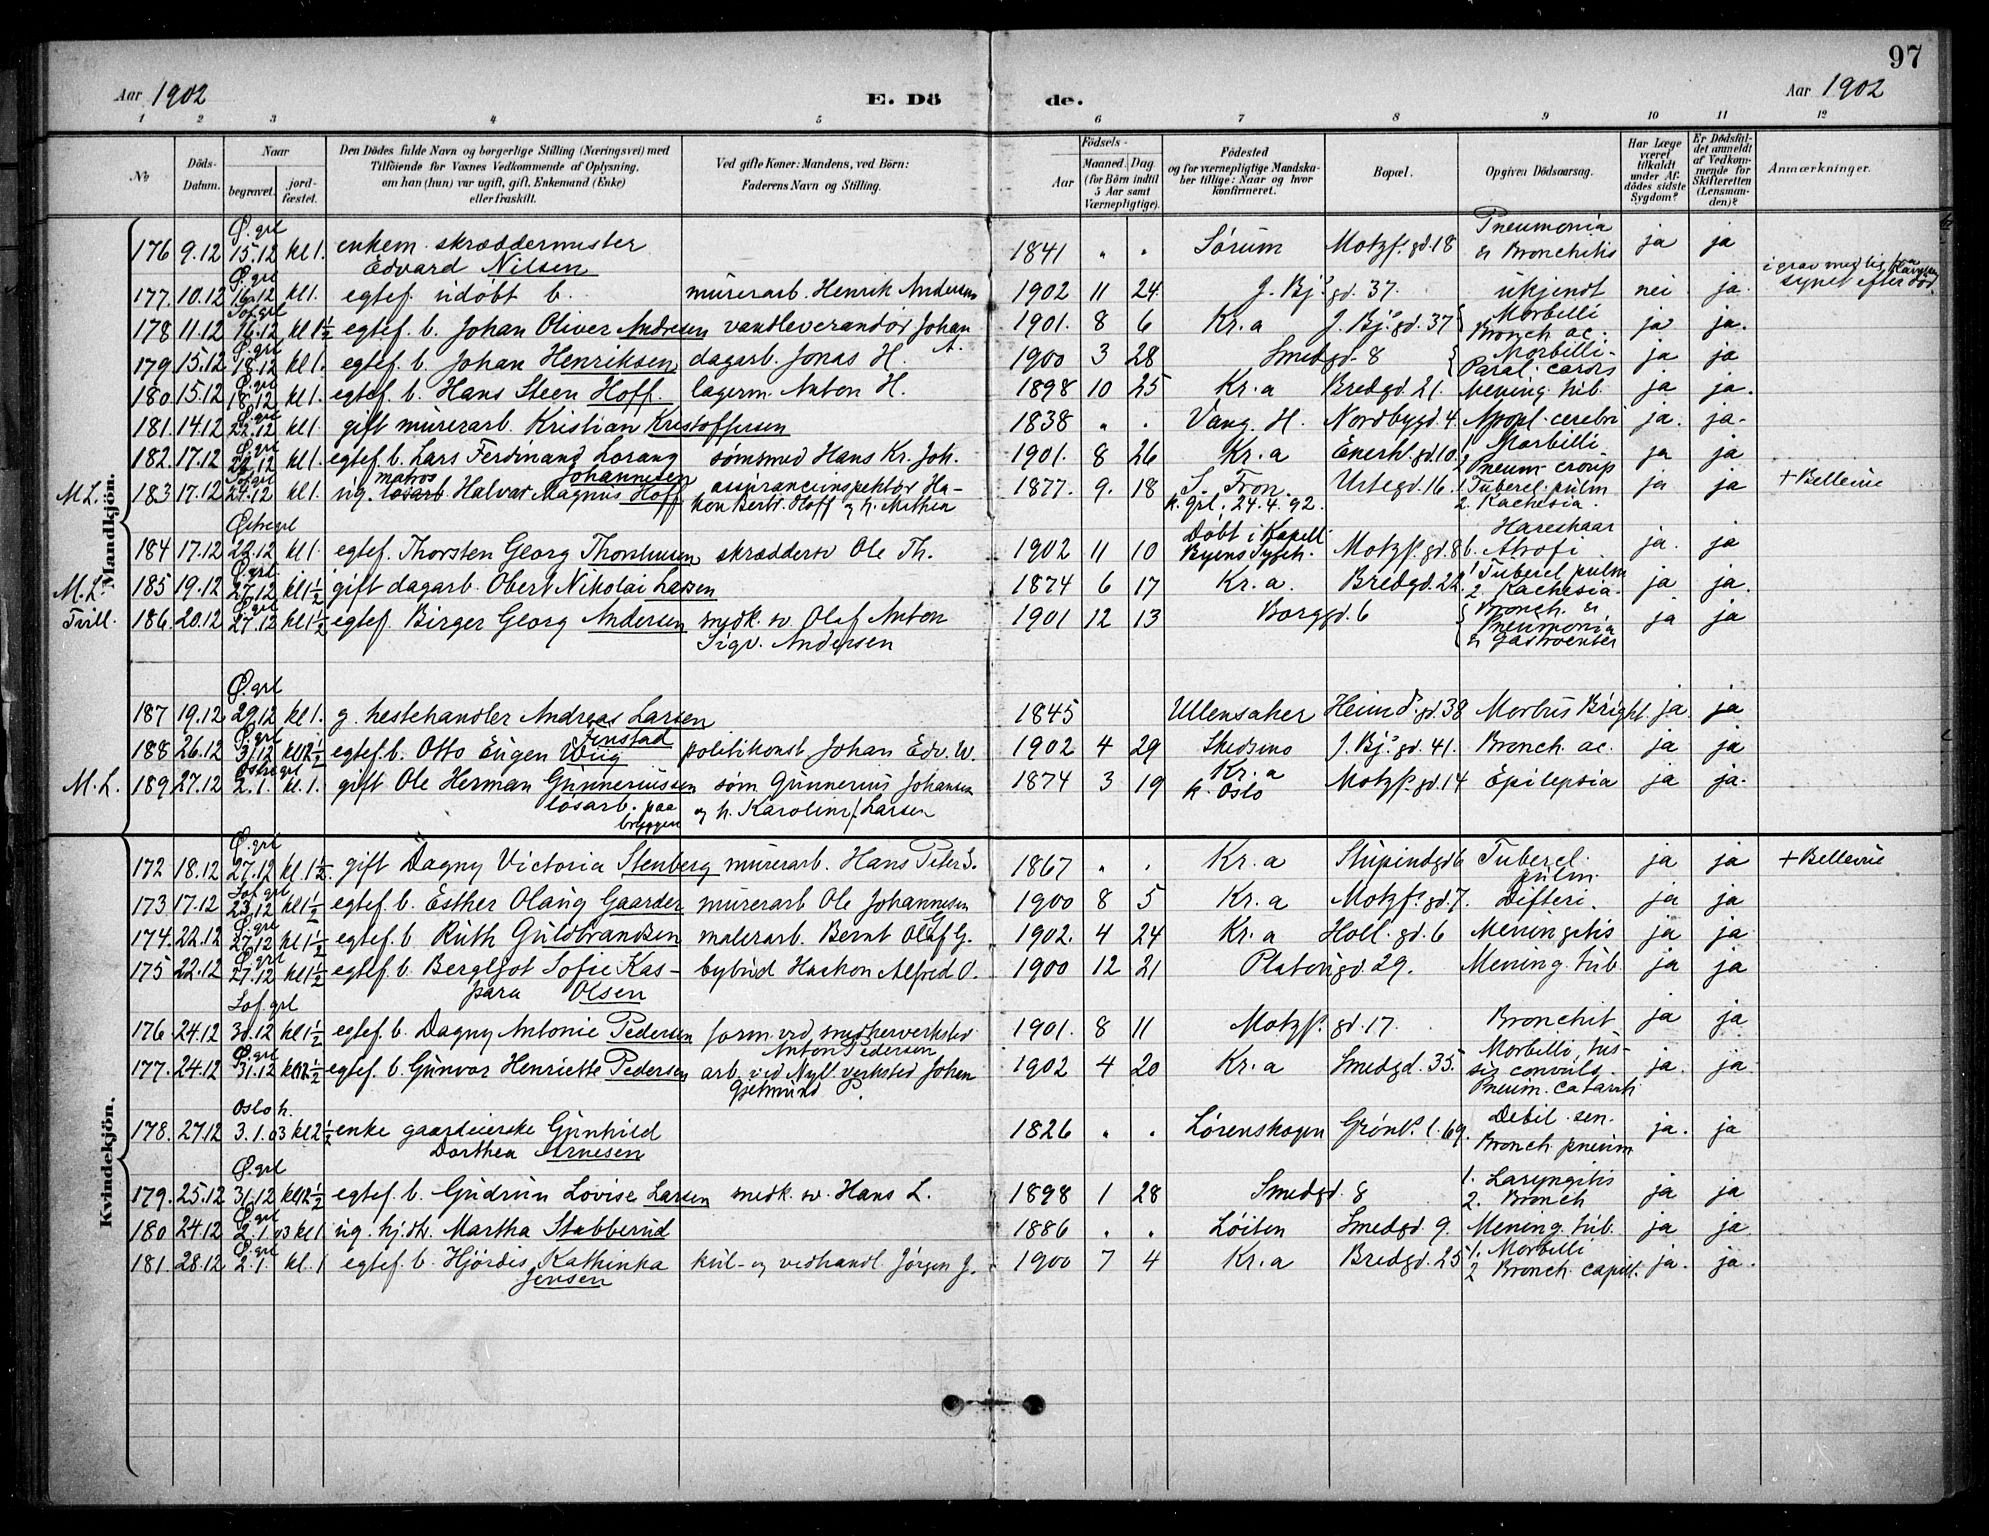 97
Aar 1902 E. Dö de. Aar 1902
1 2 3 4 5 6 7 8 9 10 11 12
No Döds-Datum. Naar begravet. jord-fæstet. Den Dödes fulde Navn og borgerlige Stilling (Næringsvei) med Tilföiende for Voxnes Vedkommende af Oplysning, om han (hun) var ugift, gift, Enkemand (Enke) eller fraskilt. Ved gifte Koner: Mandens, ved Börn: Faderens Navn og Stilling. Födsels- Aar Maaned. Dag. (for Börn indtil 5 Aar samt Værnepligtige). Födested og for værnepligtige Mandskaber tillige: Naar og hvor konfirmeret. Bopæl. Opgiven Dödsaarsag. Har Læge været tilkaldt under Afdödes sidste Sygdom? Er Dödsfaldet anmeldt af Vedkommende for Skifteretten (Lensmanden)? Anmærkninger.
Mandkjön.
176 9.12 Ø. grl 15.12 kl 1. enkem. skræddermester Edvard Nilsen 1841 " " Sørum Motzf. gd. 18 Pneumonia & Bronchitis ja ja
177. 10.12 Ø. grl 16.12 kl 1. egtef. udøbt b. murerarb. Henrik Andersen 1902 11 24 J. Bj. gd. 37. ukjendt nei ja.
178 11.12 Sof. grl 16.12 kl 1½ egtef. b. Johan Oliver Andresen vandleverandør Johan A. 1901. 8 6 Kr.a J. Bj. gd. 37 Morbilli Bronch. ac. ja ja.
179 15.12 Ø. grl 18.12 kl 1. egtef. b. Johan Henriksen dagarb. Jonas H. 1900 3 28 Smedgd. 8 Morbilli. Paral. cordis ja ja
180 15.12 Ø. grl 18.12 kl 1. egtef. b. Hans Steen Hoff. lagerm. Anton H. 1898 10 25 Kr.a Bredgd. 21. Mening. tub. ja ja.
181. 14.12 Ø. grl 22.12 kl 1. gift murerarb. Kristian Kristoffersen 1838 " " Vang. H. Nordbygd. 4. Apopl. cerebri ja. ja.
182. 17.12 Ø. grl 22.12 kl 1. egtef. b. Lars Ferdinand Lorang Johannesen sømsmed Hans Kr. Joh. 1901. 8 26 Kr.a Enerh. gd. 10. 1 Morbilli 2 Pneum. croup ja ja
M.L. 183 17.12 Sof. grl 24.12 kl 1. ug. matros løsarb. Halvar Magnus Hoff assuranceinspektør Hakon Bertr. Hoff og h. Mathea 1877. 9. 18 S. Fron. k. grl. 24.4.92. Urtegd. 16. 1 Tubercl. pulm 2. Kachexia. ja ja + Bellevue
184 17.12 Østre grl 22.12 kl 1. egtef. Thorsten Georg Thorstensen skræddersv Ole Th. 1902 11 10 Døbt i Kapell Byens Sygeh. Motzf. gd. 8 b. Atrofi. ja. ja
M.L. 185 19.12 Ø. grl 27.12 kl 1½ gift dagarb. Obert Nikolai Larsen 1874 6 17 Kr.a. Bredgd. 22. 1 Tubercl. pulm 2. Kachexia. ja ja.
Tvill. 186. 20.12 Ø. grl 27.12 kl 1½ egtef. Birger Georg Andersen smedk. sv. Olaf Anton Sigv. Andersen 1901 12 13 Borggd. 6 Bronch. & Pneumonia & Gastroenter ja ja
187 19.12 Ø. grl 29.12 kl 1. g. hestehandler Andreas Larsen 1845 Ullensaker Heimd. gd. 38 Morbus Bright. ja ja
188 26.12 Ø. grl 31.12 kl 12½ egtef. b. Otto Eugen Fenstad Wiig politikonst Johan Edv. W. 1902 4 29 Skedsmo J. Bj. gd. 41. Bronch. ac. ja ja
M.L. 189 27.12 Østre grl 2.1. kl. 1. gift Ole Herman Gunneriussen løsarb. paa bryggen søm Gunnerius Johansen og h. Karoline f. Larsen 1874 3 19 Kr.a k. Oslo Motzf. gd. 14 Epilepsia ja ja.
Kvindekjön.
172 18.12 Ø. grl 27.12 kl 1½. gift Dagny Victoria Stenberg murerarb. Hans Peter S. 1867 " " Kr.a Stupindgd 6 Tubercl. pulm. ja ja + Bellevue
173 17.12 Sof. grl 23.12 kl 1½ egtef. b. Esther Olaug Gaarder murerarb Ole Johannesen G. 1900 8 5 Kr.a Motzf. gd. 7. Difteri. ja ja
174. 22.12 Ø. grl 27.12 kl 1½ egtef. b. Ruth Guldbrandsen malerarb. Bernt Olaf G. 1902. 4 24 Kr.a Holl. gd. 6 Meningitis ja ja
175 22.12 Ø. grl 27.12 kl 1½ egtef. b. Bergljot Sofie Kaspara Olsen bybud Haakon Alfred O. 1900 12 21 Platougd. 29. Mening. tub ja ja
176 24.12 Sof. grl 30.12 kl 1½ egtef. b. Dagny Antonie Pedersen form. ved smedherverksted Anton Pedersen 1901. 8 11 Motzf. gd. 17. Bronchit ja ja
177. 24.12 Ø. grl 31.12 kl 12½ egtef. b. Gunvor Henriette Pedersen arb. ved Nyl. verksted Johan Gjetmund P. 1902 4 20 Kr.a Smedgd. 35. Morbilli, tussis convuls. Pneum. catarrh ja. ja.
178. 27.12 Oslo h. 3.1.03 kl 2½ enke gaardeierske Gunhild Dorthea Arnesen 1826 " " Lørenskogen Grønl. l. 69. Debil. sen. Bronch. pneum ja. ja
179. 25.12 Ø. grl 31.12 kl 12½ egtef. b. Gudrun Lovise Larsen smedk. sv. Hans L. 1898 1 28 Smedgd. 8 1. Laryngitis 2. Bronch ja ja
180 24.12 Ø. grl 2.1.03 kl 1 ug. hj.dtr. Martha Stabberud 1886 " " Løiten Smedgd. 9. Mening. tub. ja ja.
181. 28.12 Ø. grl 2.1. kl. 1 egtef. b. Hjørdis Kathinka Jensen kul- og vedhandl. Jørgen J. 1900 7 4 Kr.a Bredgd. 25 1. Morbilli 2 Bronch. capill. ja. ja.